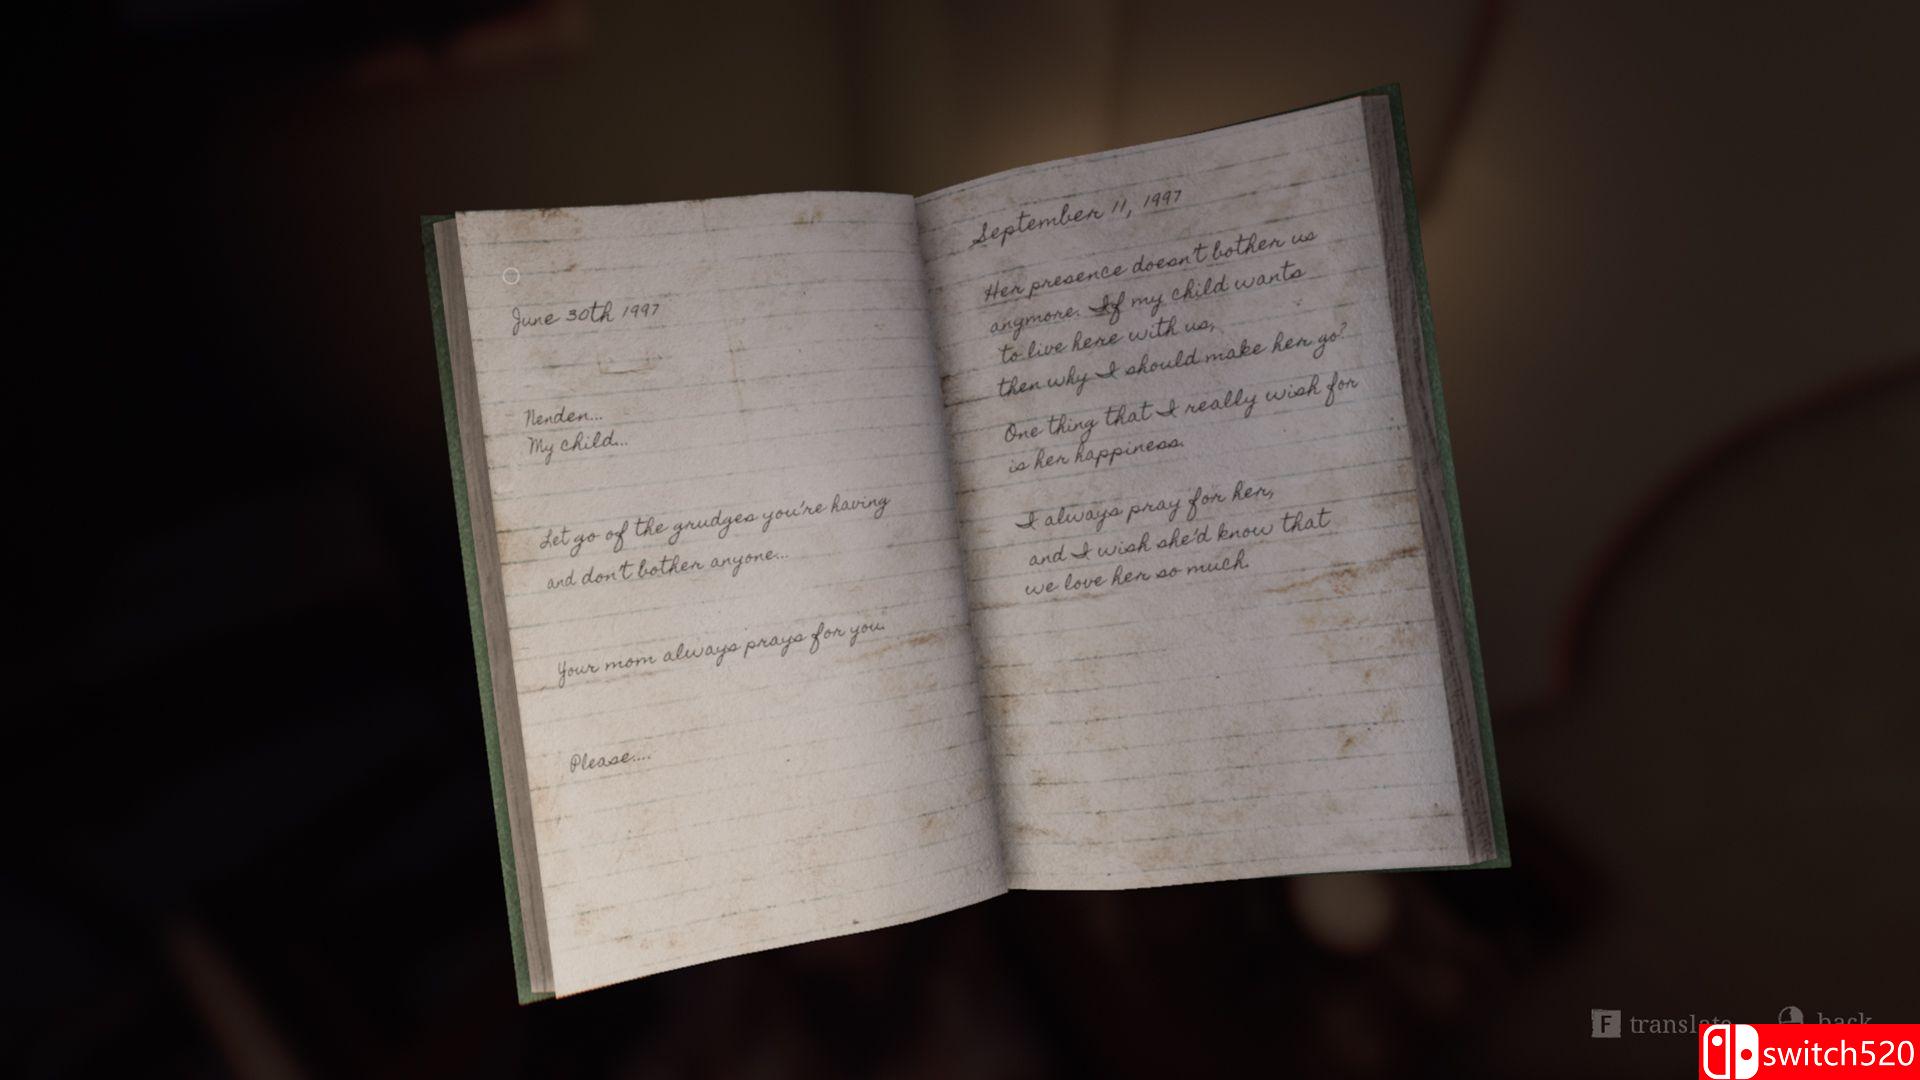 June 30th 1997
Nenden...
My child...
Let go of the grudges you're having
and don't bother anyone...
Your mom always prays for you.
Please....
September 11, 1997
Her presence doesn't bother us
anymore. If my child wants
to live here with us,
then why I should make her go?
One thing that I really wish for
is her happiness.
I always pray for her,
and I wish she'd know that
we love her so much.
F translate
back
switch520